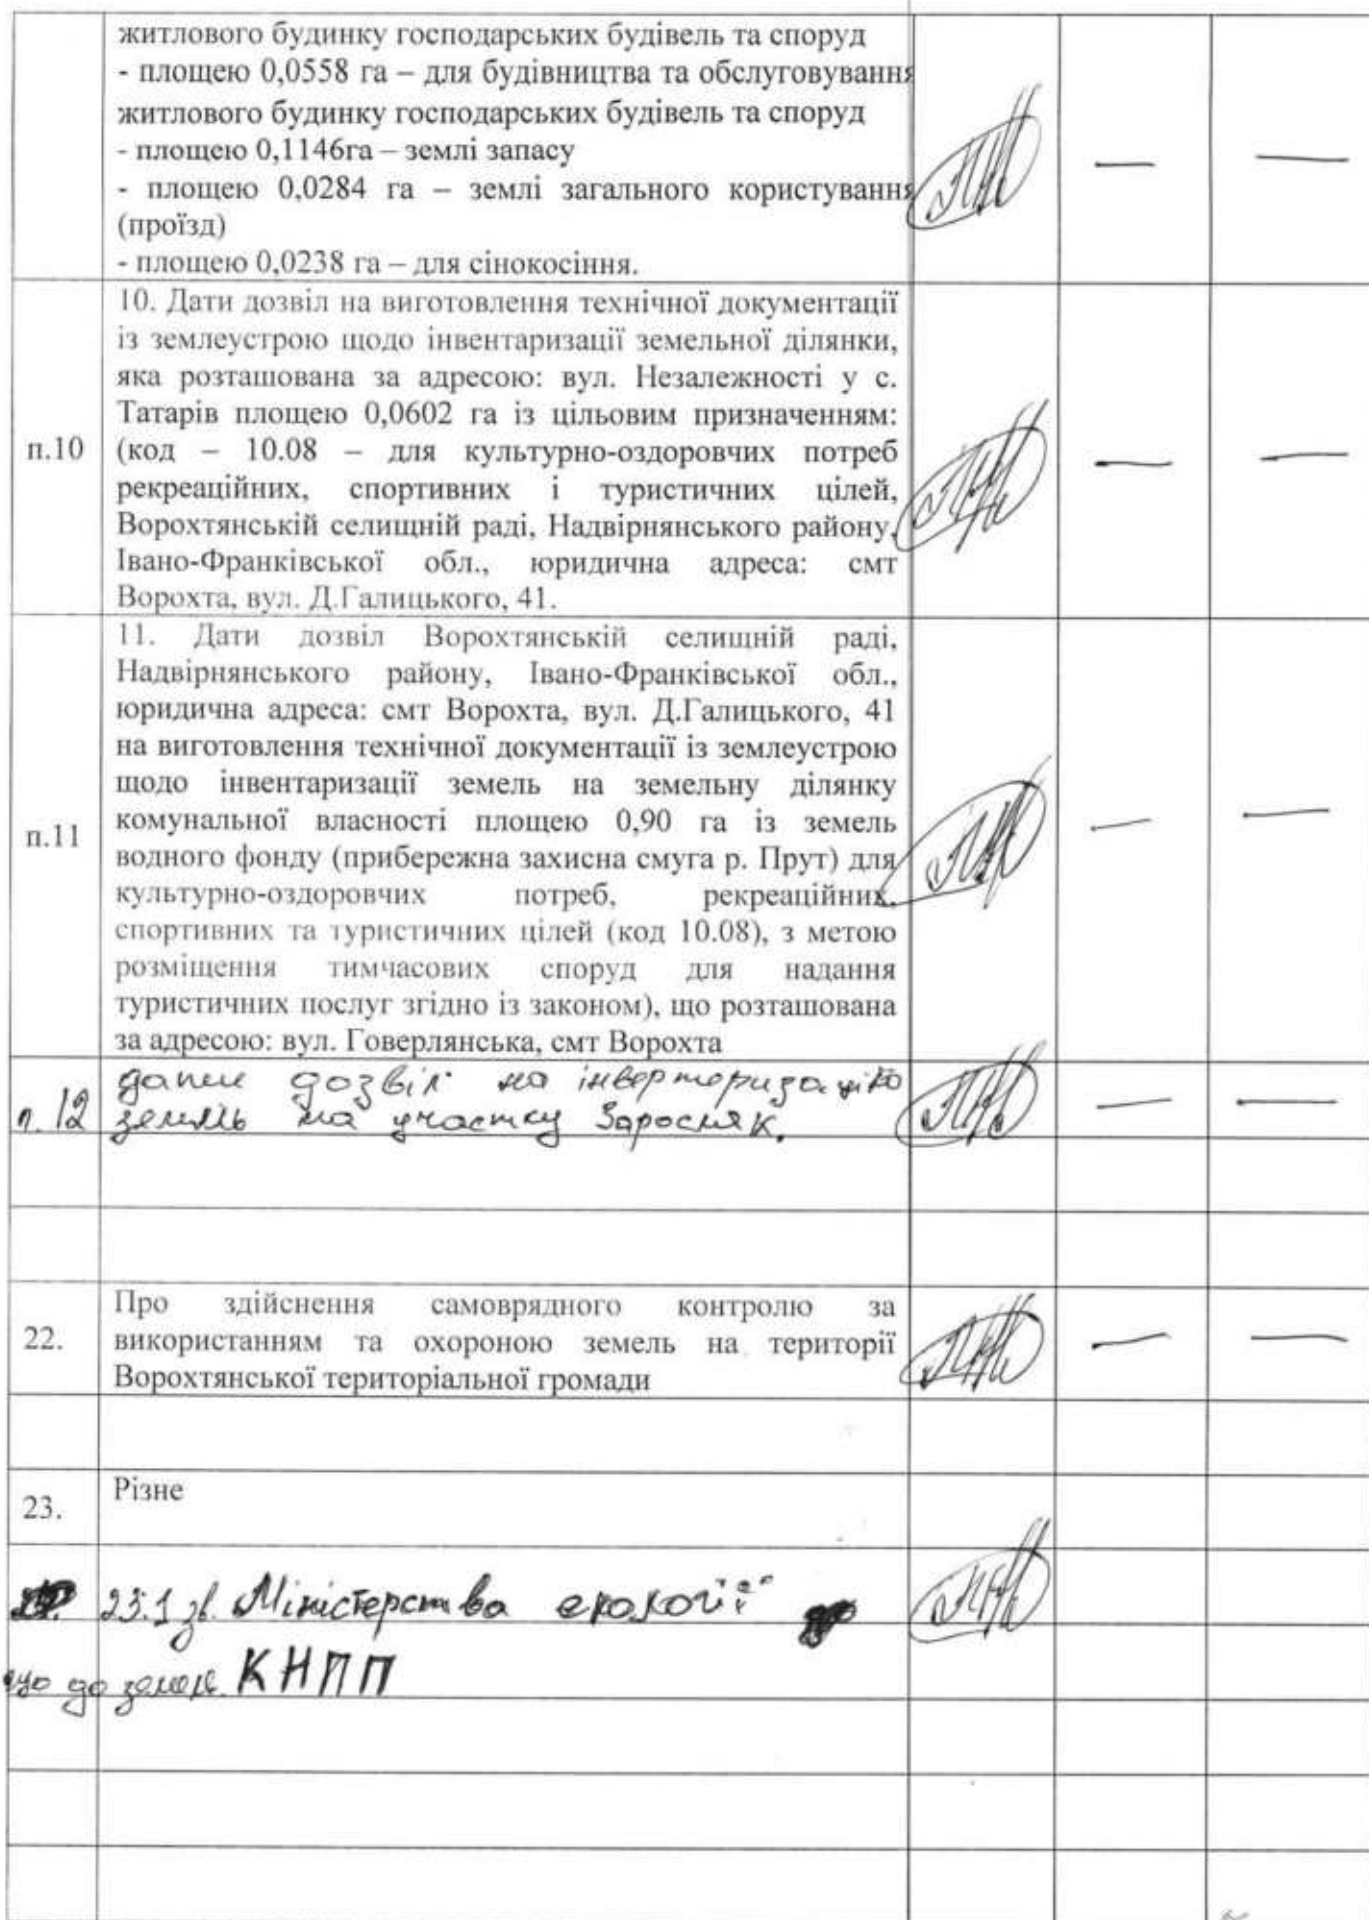 житлового будинку господарських будівель та споруд
- площею 0,0558 га – для будівництва та обслуговування
житлового будинку господарських будівель та споруд
- площею 0,1146га – землі запасу
- площею 0,0284 га – землі загального користування
(проїзд)
- площею 0,0238 га – для сінокосіння.
п.10
10. Дати дозвіл на виготовлення технічної документації
із землеустрою щодо інвентаризації земельної ділянки,
яка розташована за адресою: вул. Незалежності у с.
Татарів площею 0,0602 га із цільовим призначенням:
(код – 10.08 – для культурно-оздоровчих потреб
рекреаційних, спортивних і туристичних цілей,
Ворохтянській селищній раді, Надвірнянського району,
Івано-Франківської обл., юридична адреса: смт
Ворохта, вул. Д.Галицького, 41.
п.11
11. Дати дозвіл Ворохтянській селищній раді,
Надвірнянського району, Івано-Франківської обл.,
юридична адреса: смт Ворохта, вул. Д.Галицького, 41
на виготовлення технічної документації із землеустрою
щодо інвентаризації земель на земельну ділянку
комунальної власності площею 0,90 га із земель
водного фонду (прибережна захисна смуга р. Прут) для
культурно-оздоровчих потреб, рекреаційних,
спортивних та туристичних цілей (код 10.08), з метою
розміщення тимчасових споруд для надання
туристичних послуг згідно із законом), що розташована
за адресою: вул. Говерлянська, смт Ворохта
п. 12
дозвіл на
земль на участку Заросляк.
22.
Про здійснення самоврядного контролю за
використанням та охороною земель на території
Ворохтянської територіальної громади
23.
Різне
23.1 зв. Міністерства екології
що до земель КНПП